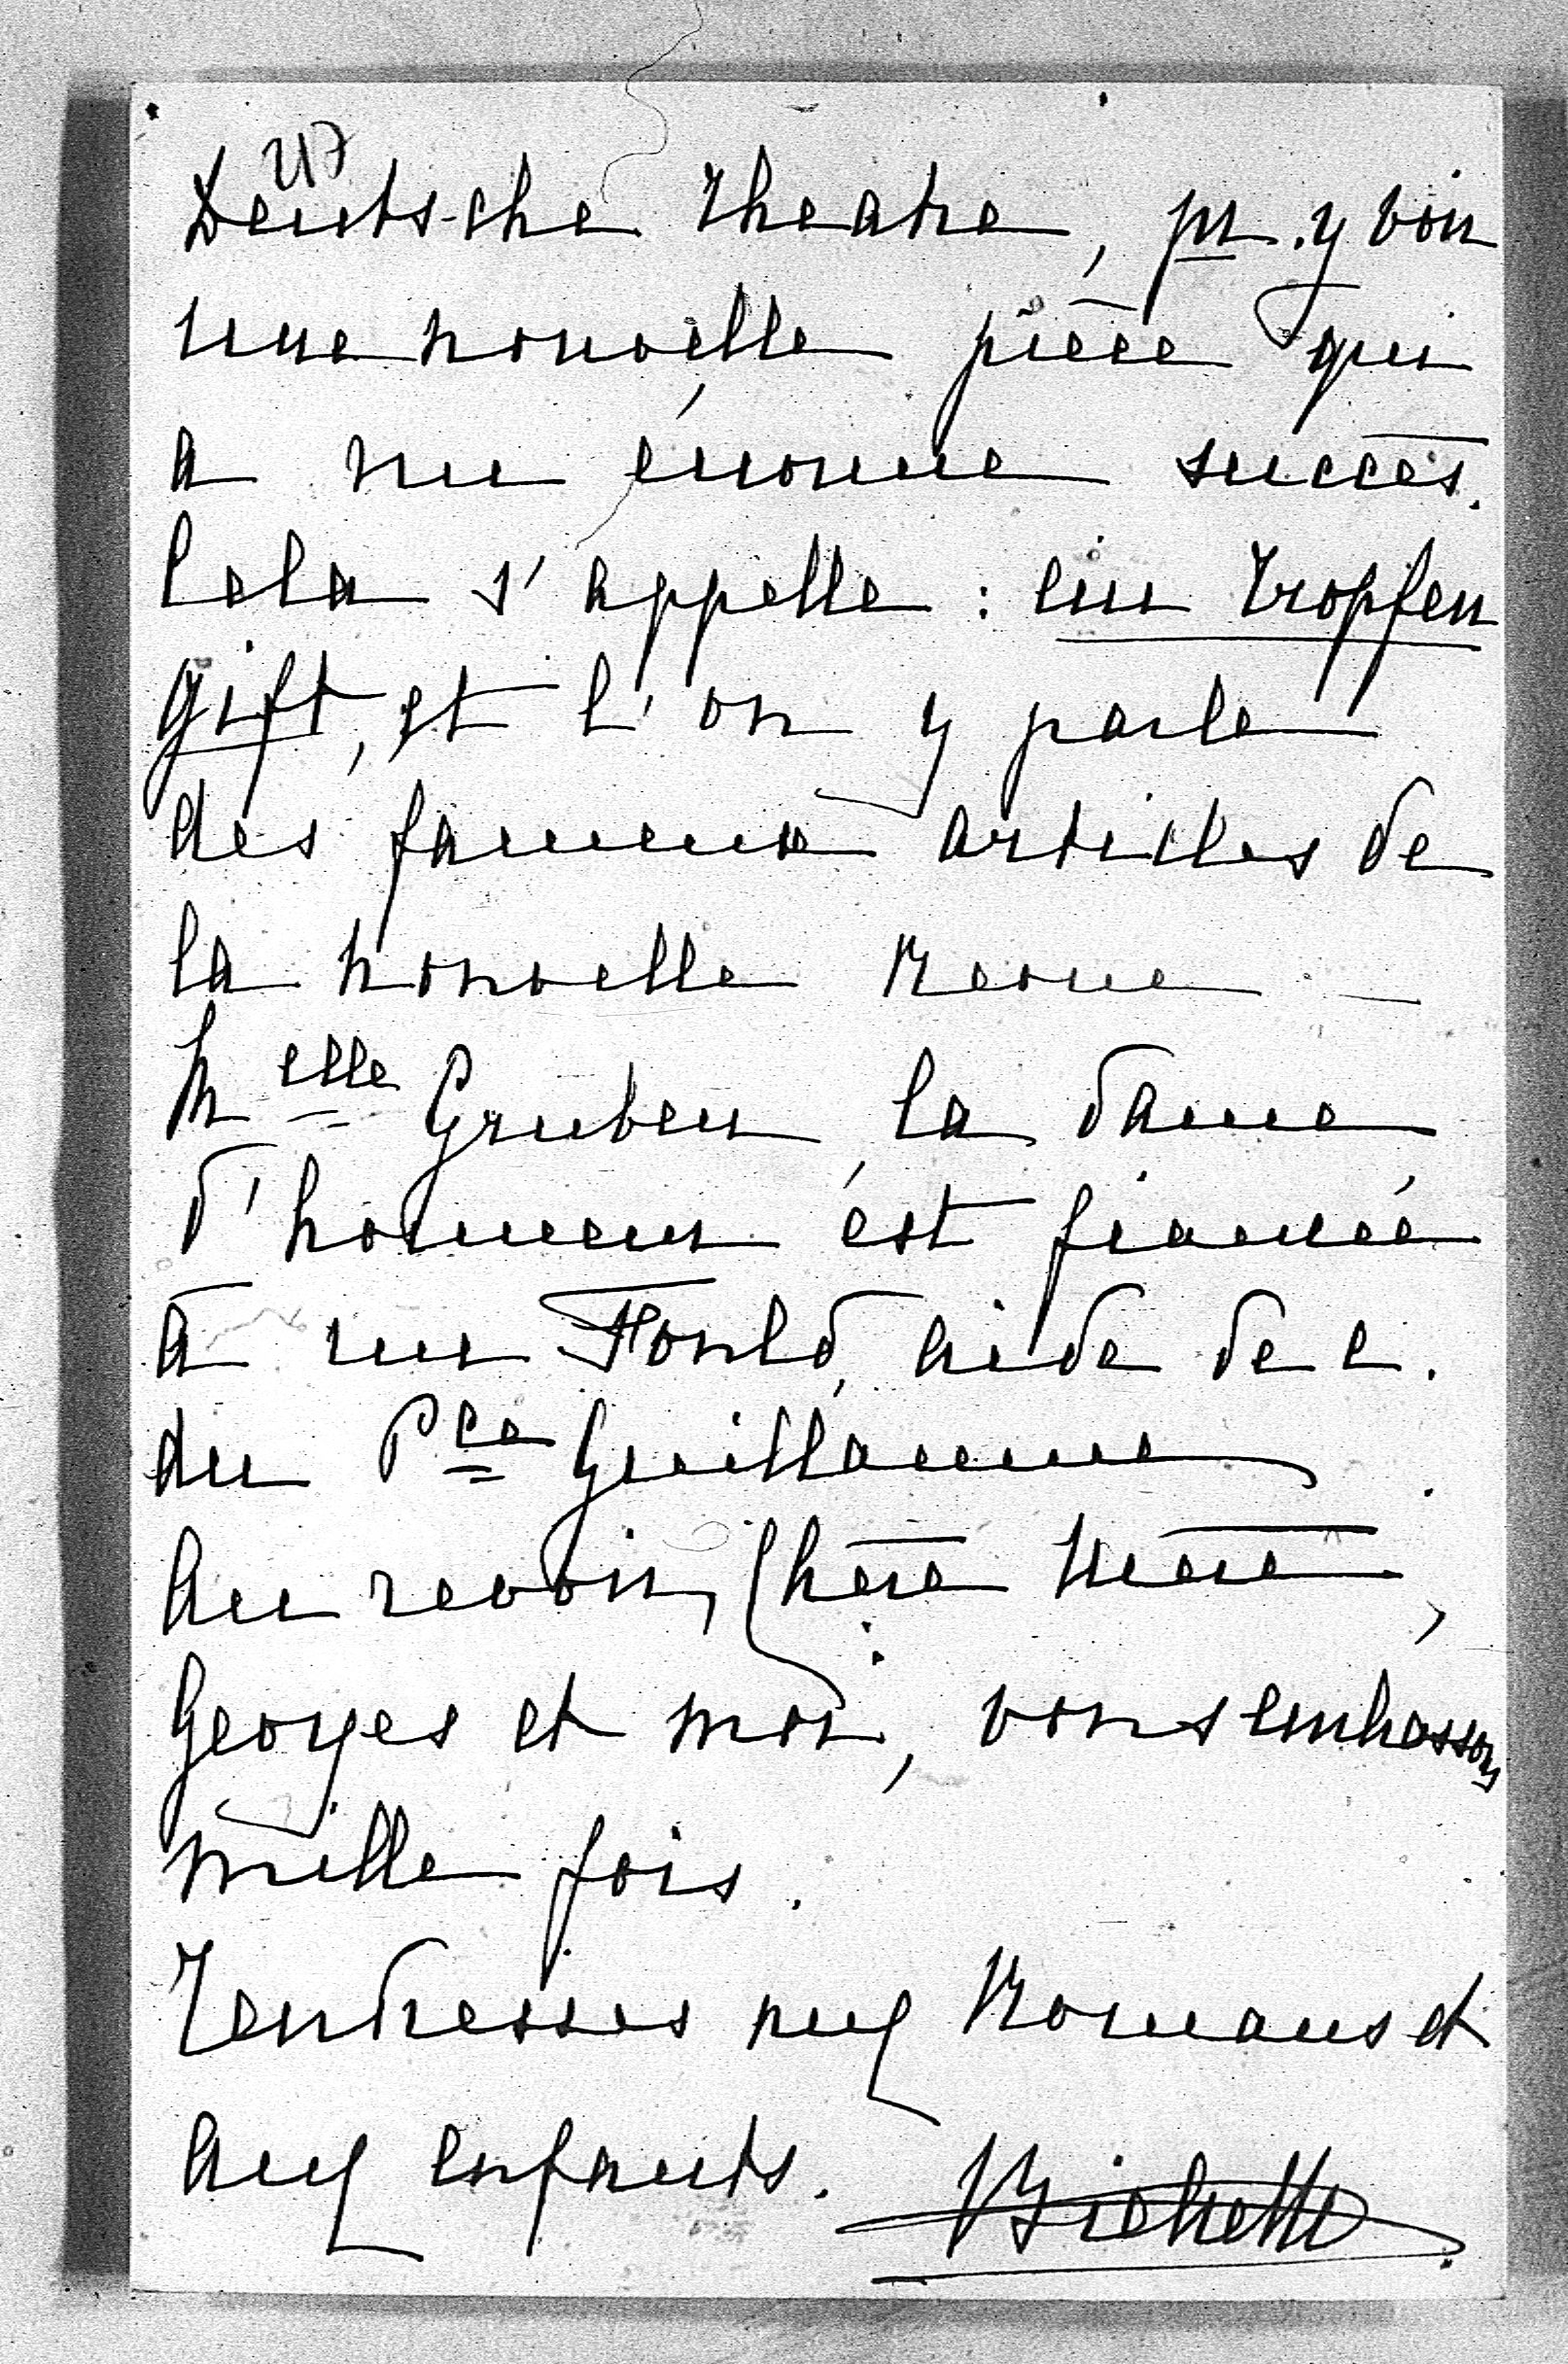 217
Deuts-che Theatre, pr. y voir
une nouvelle pièce qui
a un énorme succès.
Cela s'appelle : ein Tropfen
Gift, et l'on y parle
des fameux articles de
la nouvelle Revue —
Melle Gruben, la dame
d'honneur est fiancée
à un Fould, aide de c.
du Pce Guillaume.
Au revoir, Chère Mère,
Georges et moi, vous embrassons
mille fois.
Tendresses aux Romans et
aux enfants. Bichette